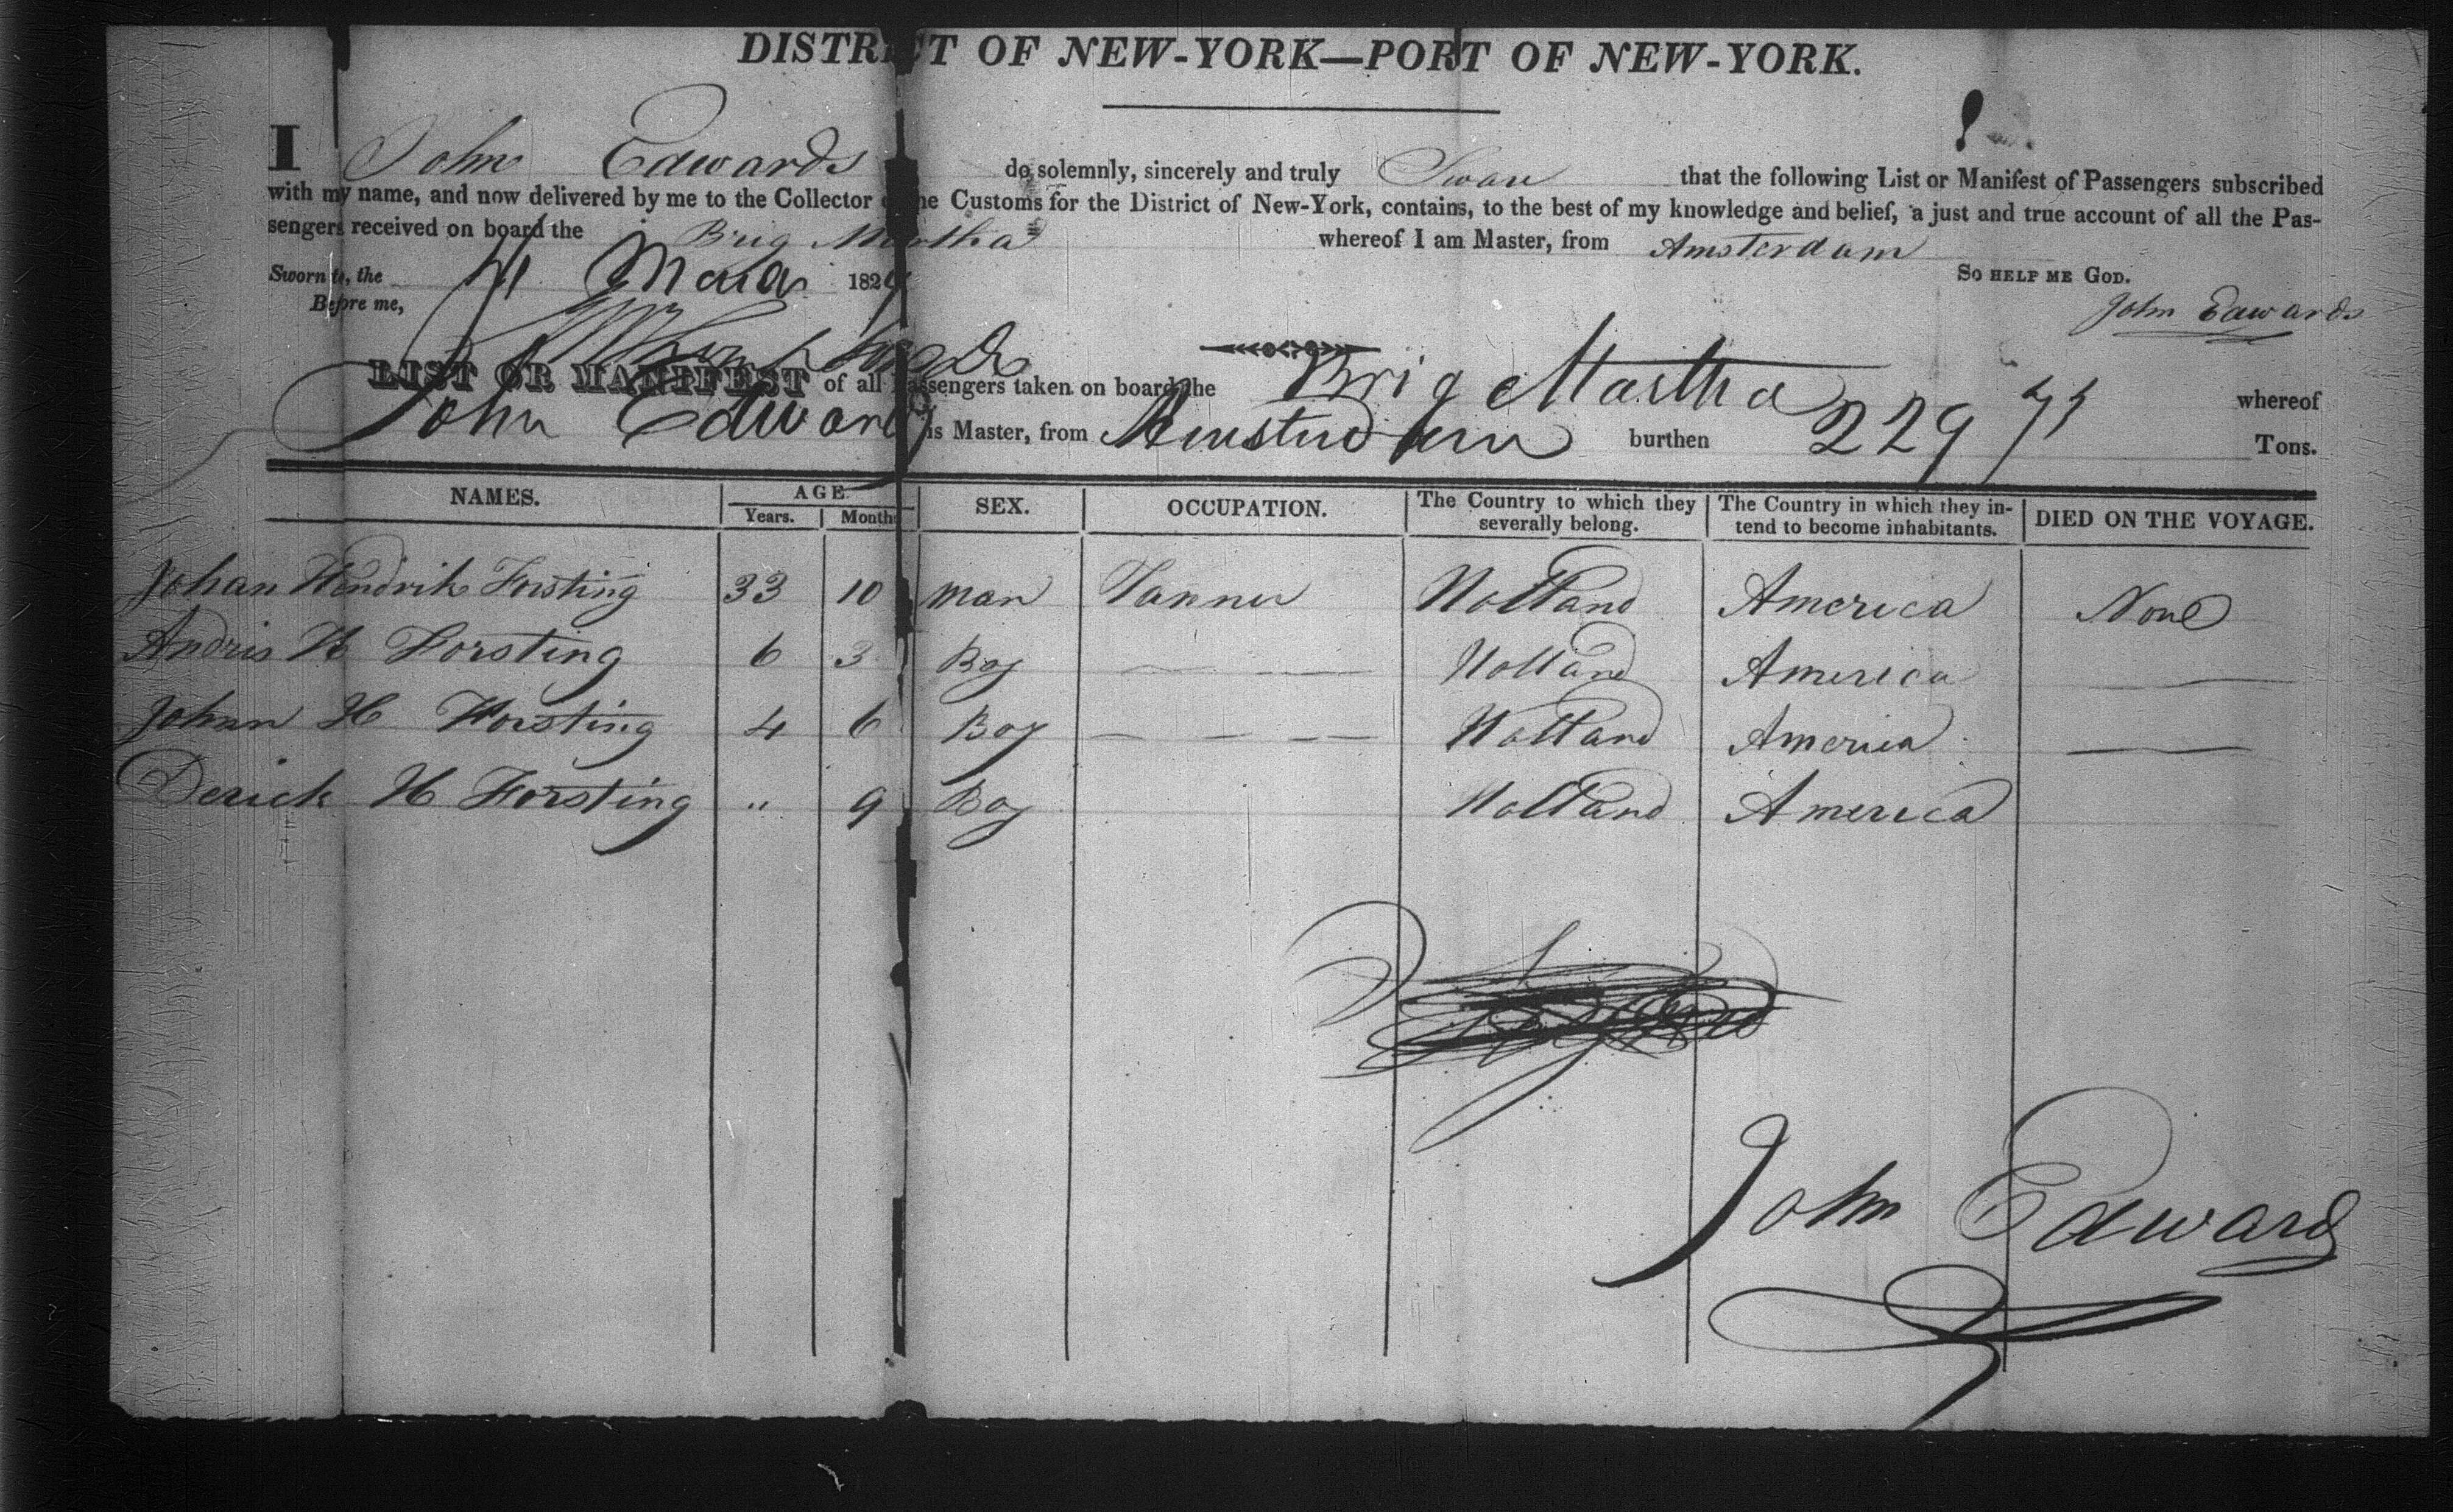 DISTRICT OF NEW-YORK—PORT OF NEW-YORK.
I John Edwards do solemnly, sincerely and truly Swear that the following List or Manifest of Passengers subscribed
with my name, and now delivered by me to the Collector of the Customs for the District of New-York, contains, to the best of my knowledge and belief, a just and true account of all the Pas-
sengers received on board the Brig Martha whereof I am Master, from Amsterdam
Sworn to, the 182 So HELP ME GOD.
Before me, John Edwards
LIST OR MANIFEST of all Passengers taken on board the Brig Martha whereof
John Edwards is Master, from Amsterdam burthen 229 Tons.
NAMES. AGE SEX. OCCUPATION. The Country to which they severally belong. The Country in which they in-tend to become inhabitants. DIED ON THE VOYAGE.
Years. Months
Johan Hendrik Forsting 33 10 man Tanner Holland America None
Andris H Forsting 6 3 Boy Holland America
Johan H Forsting 4 6 Boy Holland America
Derick H Forsting " 9 Boy Holland America
John Edwards